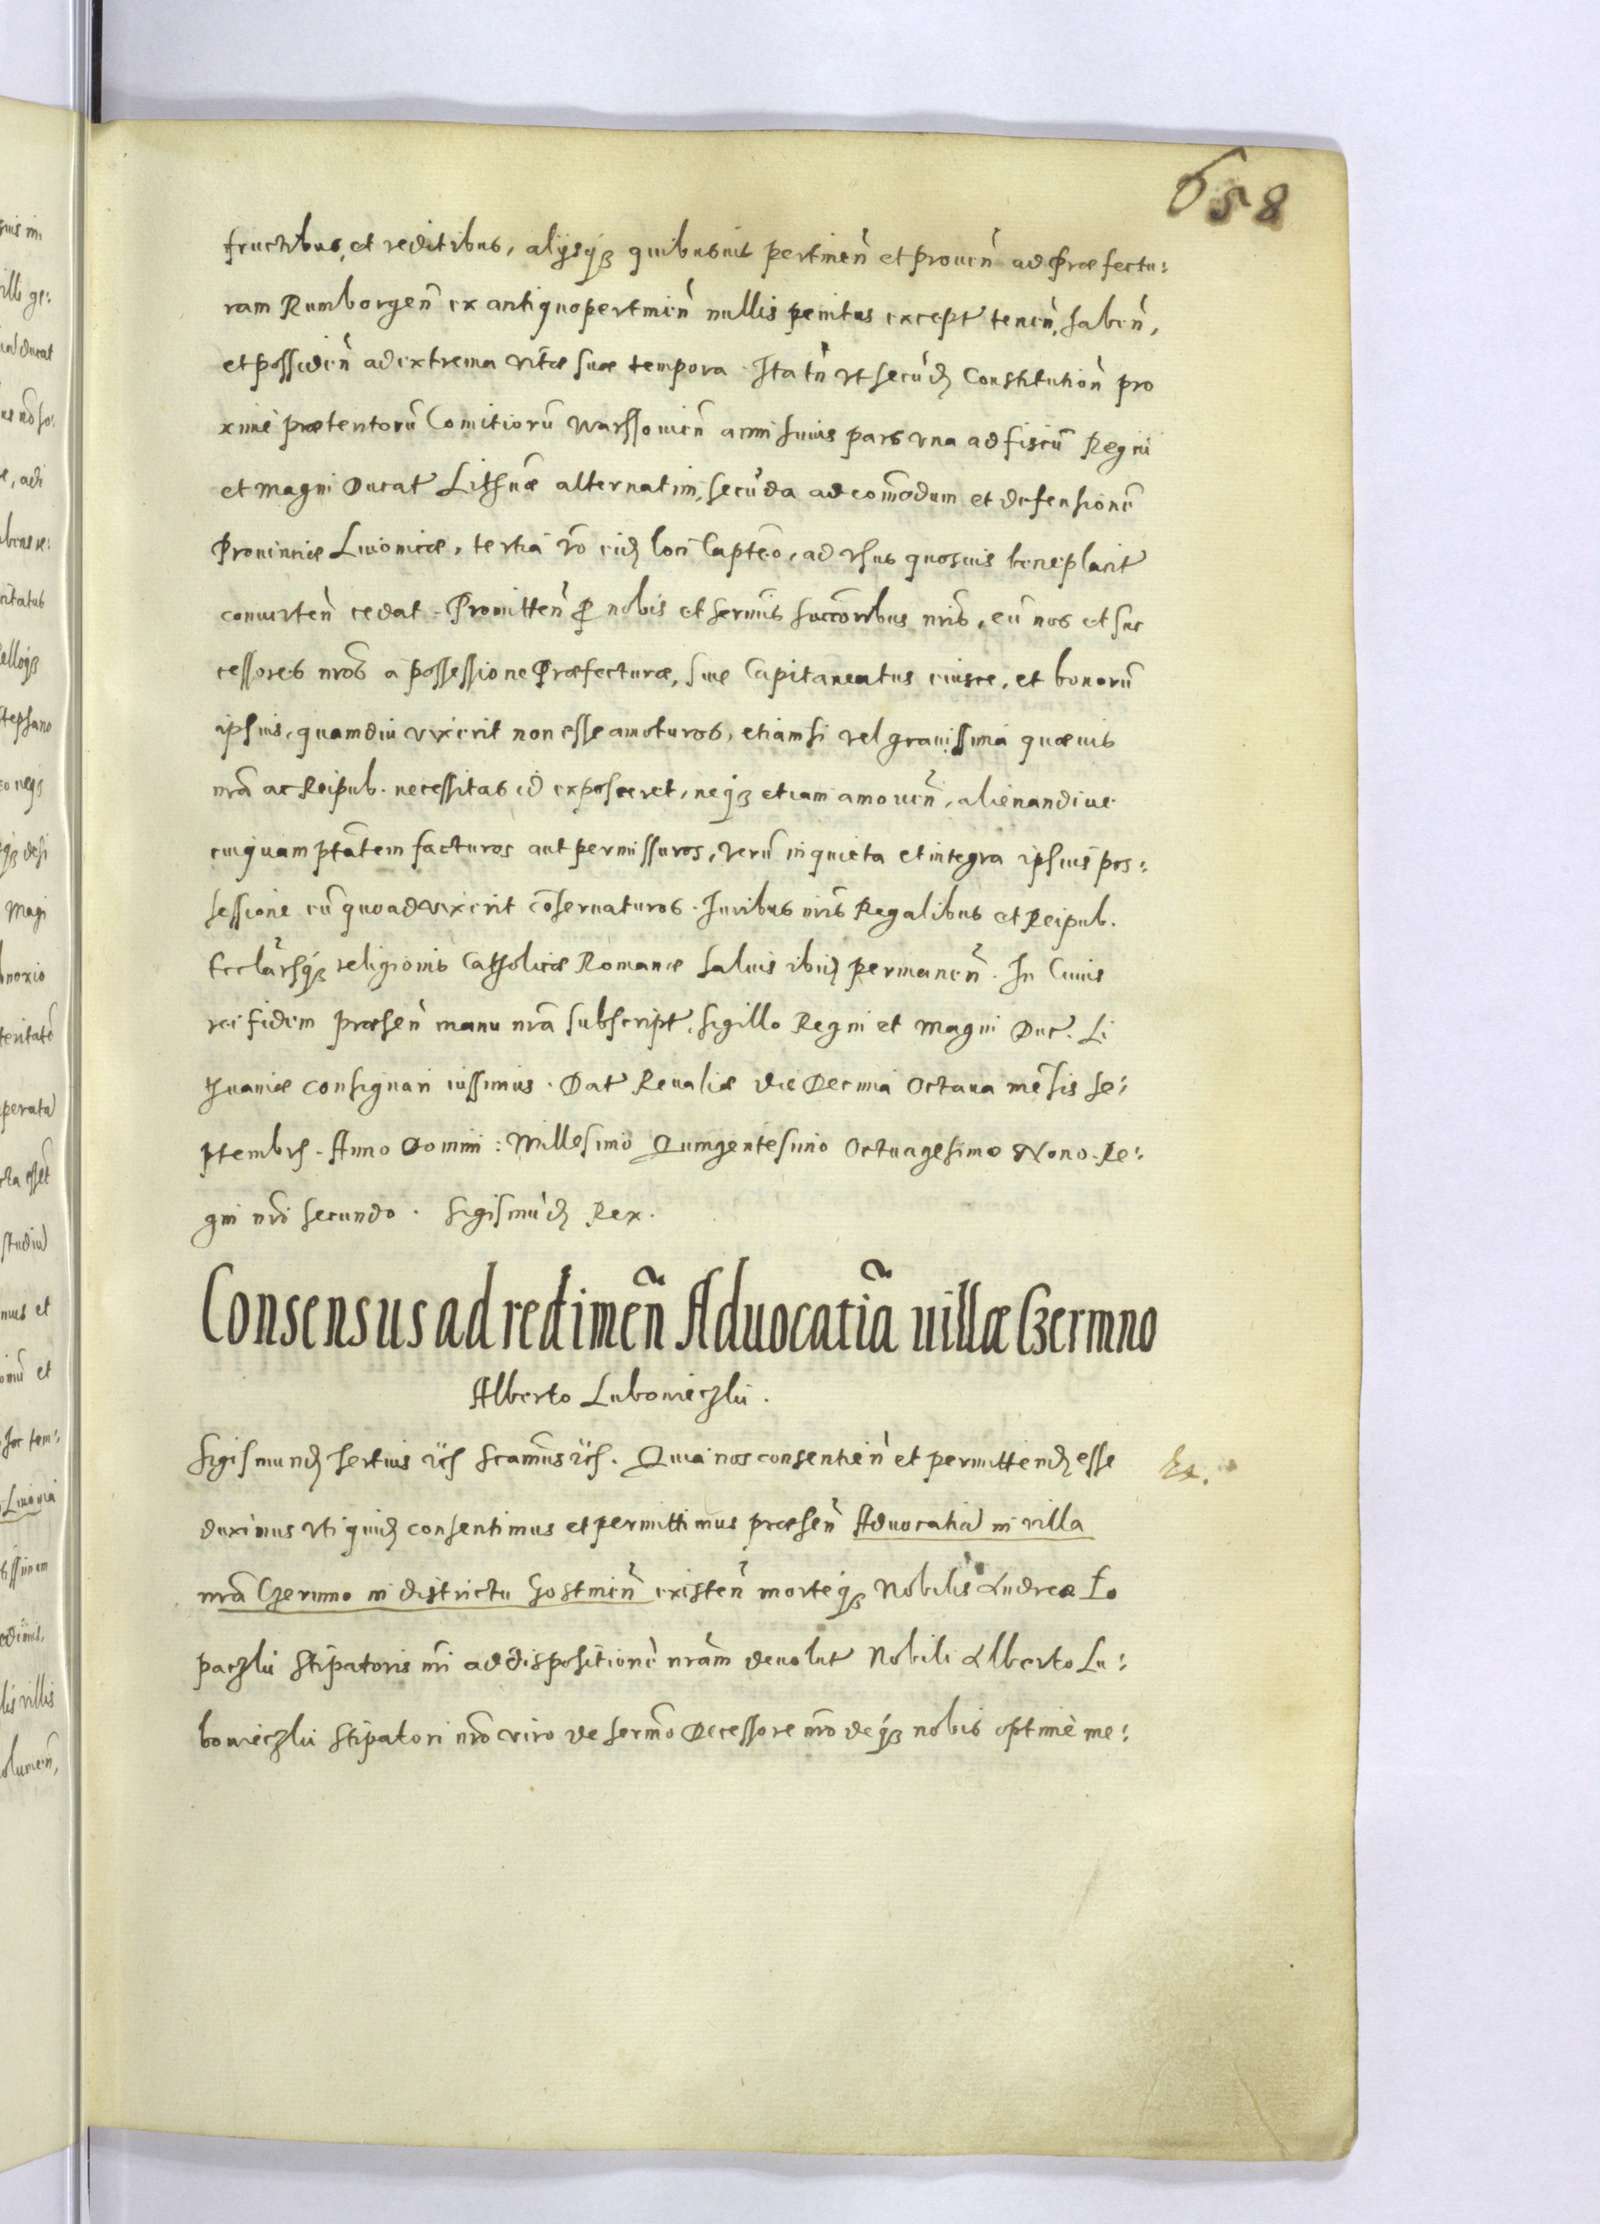 658
fructibus, et reditibus, alijsq3 quibusuis pertineñ et proueñ ad Præfectu:
ram Rumborgeñ ex antiquo pertineñ nullis penitus except teneñ, habeñ,
et possideñ ad extrema vitæ suæ tempora. Ita tñ vt secūd Constitutioñ pro
xime prætentorū Comitiorū Warssouieñ anni huius pars vna ad fiscū Regni
et Magni Ducat Lithuæ alternatim, secūda ad com̃odum et defensionē
Prouinciæ Liuonicæ, tertia v̄o eid loci Captẽo, ad vsus quosuis beneplacit
conuerteñ cedat. Promitteñ p nobis et sermis succoribus nris, eū nos et suc
cessores nros a possessione Præfecturæ, siue Capitaneatus eiusce, et bonorū
ipsius, quamdiu vixerit non esse amoturos, etiamsi vel grauissima quæuis
nrã ac Reipub. necessitas id exposceret, neq3 etiam amoueñ, alienandiue
cuiquam ptãtem facturos aut permissuros, verū in quieta et integra ipsius pos:
sessione eū quoad vixerit cõseruaturos. Iuribus nris Regalibus et Reipub.
Ecclãrsq3 religionis Catholicæ Romanæ saluis ibid permaneñ. In Cuius
rei fidem præseñ manu nrã subscript, sigillo Regni et Magni Duc. Li
thuaniæ consignari iussimus. Dat Reualiæ die Decima Octaua mēsis Se:
ptembrs. Anno Domini: Millesimo Quingentesimo Octuagesimo Nono. Re:
gni nri secundo. Sigismūd Rex.
Consensus ad redimeñ Aduocatiã uillæ Czermno
Alberto Lubowieczki.
Sigismund tertius Scamus. Quia nos consentieñ et permittend esse
duximus vti quid consentimus et permittimus præseñ Aduocatiã in villa
nrã Czermno in districtu Gostineñ existeñ morteq3 Nobilis Andreæ Ło
paczki Stipatoris nri ad dispositionē nrãm deuolut Nobili Alberto Lu:
bowieczki Stipatori nr̃o viro de sermo Decessore nr̃o deq3 nobis optime me: